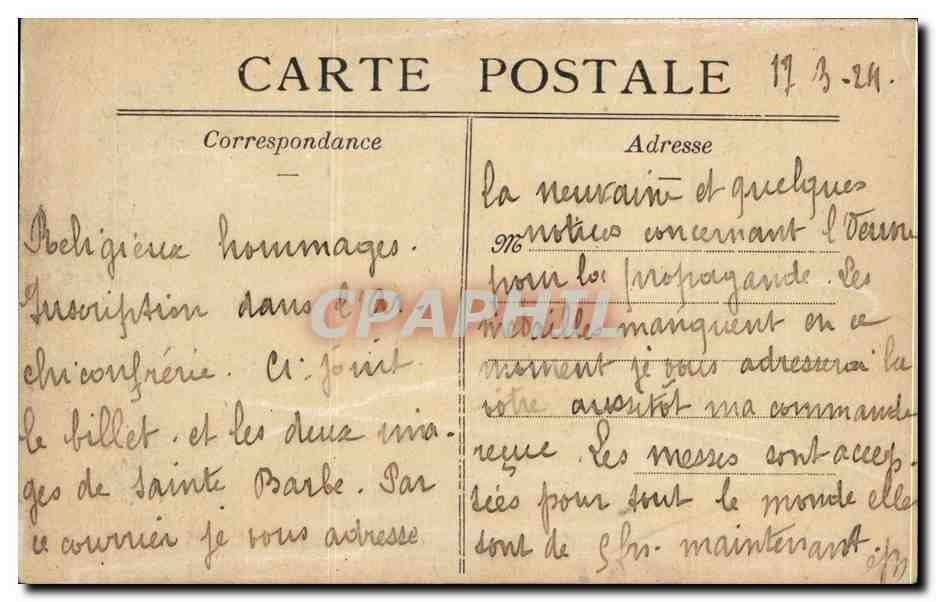 CARTE POSTALE 17 3-24.
Correspondance
Religieux hommages.
Inscription dans l'Ar-
chiconfrérie. Ci-joint
le billet. et les deux ima-
ges de Sainte Barbe. Par
ce courrier je vous adresse
Adresse
la neuvaine et quelques
M notices concernant l'Oeuvre
pour la propagande. Les
médailles manquent en ce
moment je vous adresserai la
vôtre aussitôt ma commande
reçue. Les messes sont accep-
tées pour tout le monde elle
sont de 5 frs. maintenant.
CPAPHIL